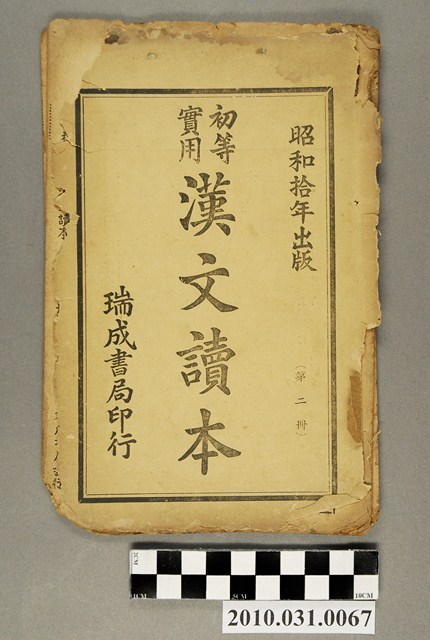 昭和拾年出版
（第二冊）
初等
實用
漢文讀本
瑞成書局印行
讀本
2CM
1CM
5CM
10CM
2010.031.0067